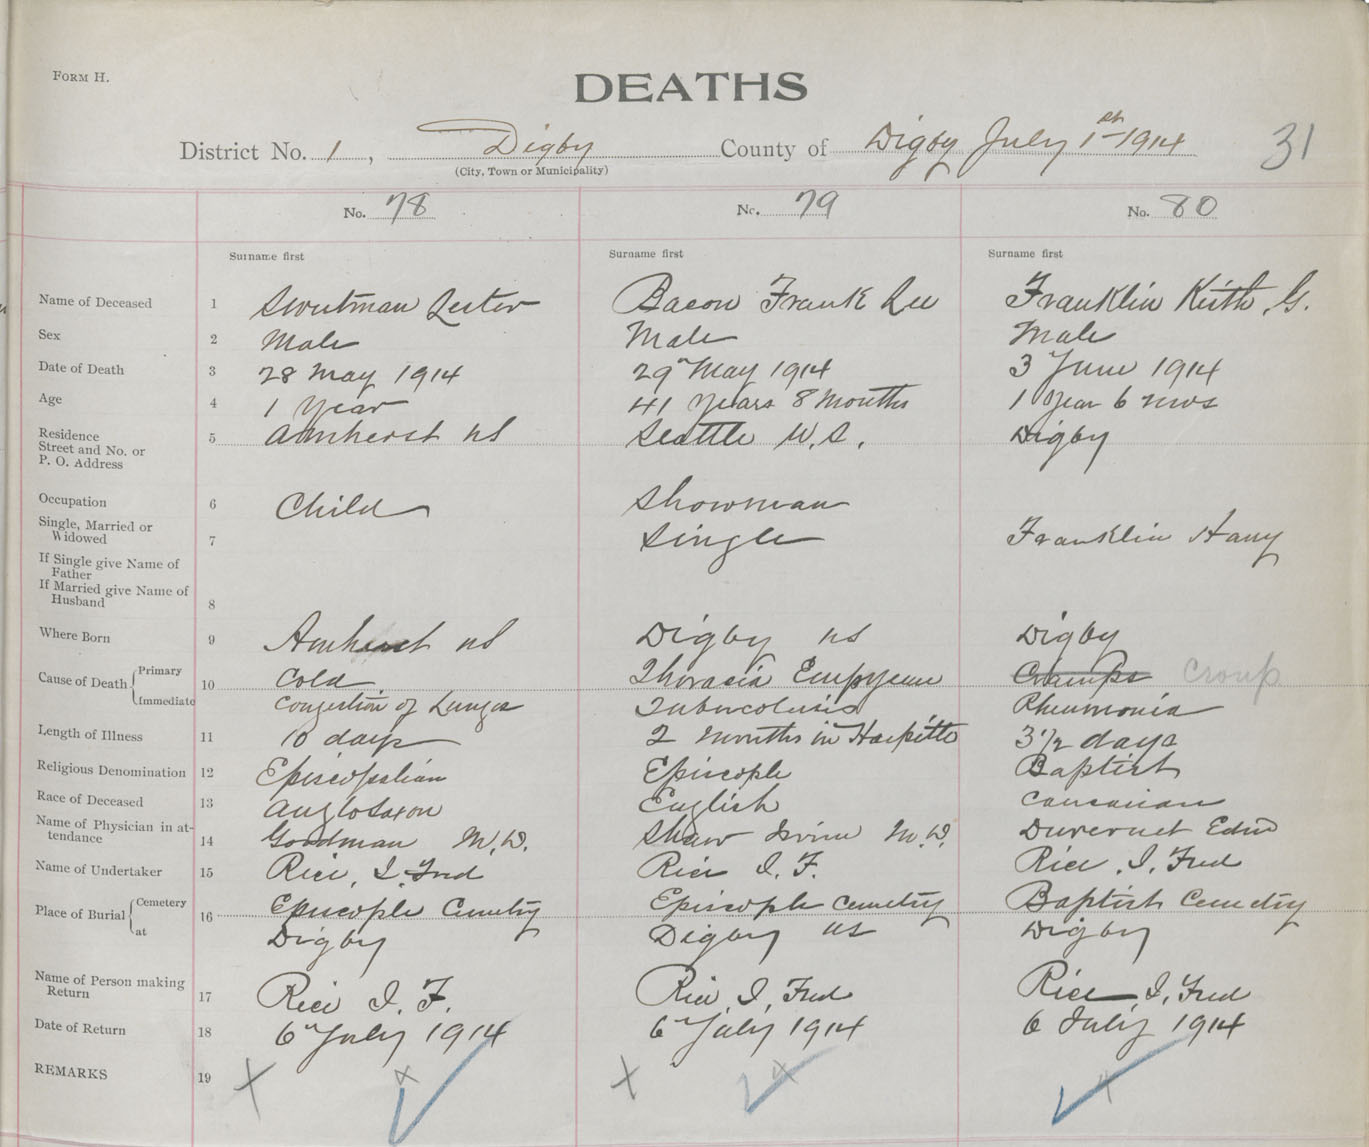 FORM H.
DEATHS
District No. 1, Digby County of Digby July 1st 1914 31
(City, Town or Municipality)
No. 78 No. 79 No. 80
Surname first Surname first Surname first
Name of Deceased 1 Lester Bacon Frank Lee Franklin Keith, G.
Sex 2 Male Male Male
Date of Death 3 28 May 1914 29th May 1914 3 June 1914
Age 4 1 Year 41 Years 8 Months 1 Year 6 mos
Residence
Street and No. or
P. O. Address 5 Amherst NS Seattle W.S. Digby
Occupation 6 Child Showman
Single, Married or
Widowed 7 Single Franklin Harry
If Single give Name of
Father
If Married give Name of
Husband 8
Where Born 9 Amherst NS Digby NS Digby
Cause of Death Primary 10 Cold Thoracia Empyeme Cramps Croup
Immediate Congestion of Lungs Tuberculosis Pneumonia
Length of Illness 11 10 days 2 Months in 3 1/2 days
Religious Denomination 12 Episcopalian Episcople Baptist
Race of Deceased 13 Anglo Saxon English Caucasian
Name of Physician in at-
tendance 14 Goodman M.D. Shaw Irvine M.D. Duvernet
Name of Undertaker 15 Rice, I. Fred Rice I. F. Rice, I. Fred
Place of Burial Cemetery 16 Episcople Cemetry Episcople Cemetry Baptist Cemetry
at Digby Digby NS Digby
Name of Person making
Return 17 Rice I. F. Rice I, Fred Rice, I, Fred
Date of Return 18 6th July 1914 6th July 1914 6 July 1914
REMARKS 19 X x X x x